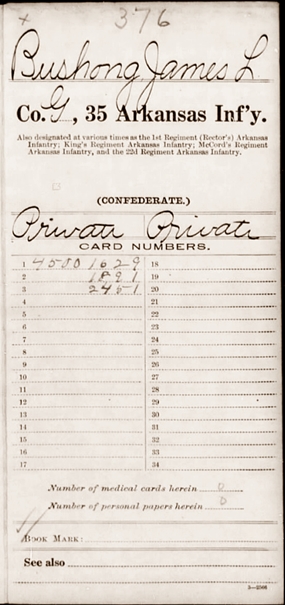 376
Bushong, James L
Co. G, 35 Arkansas Inf'y.
Also designated at various times as the 1st Regiment (Rector's) Arkansas
Infantry; King's Regiment Arkansas Infantry; McCord's Regiment
Arkansas Infantry, and the 22d Regiment Arkansas Infantry.
(CONFEDERATE.)
Private Private
CARD NUMBERS.
1 4580 1629 18
2 1891 19
3 2451 20
4 21
5 22
6 23
7 24
8 25
9 26
10 27
11 28
12 29
13 30
14 31
15 32
16 33
17 34
Number of medical cards herein 0
Number of personal papers herein 0
BOOK MARK:
See also